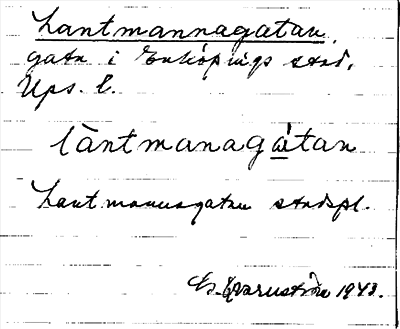 Lantmannagatan,
gata i Enköpings stad,
Ups. l.
làntmanagátan
Lantmannagatan stadspl.
1943.